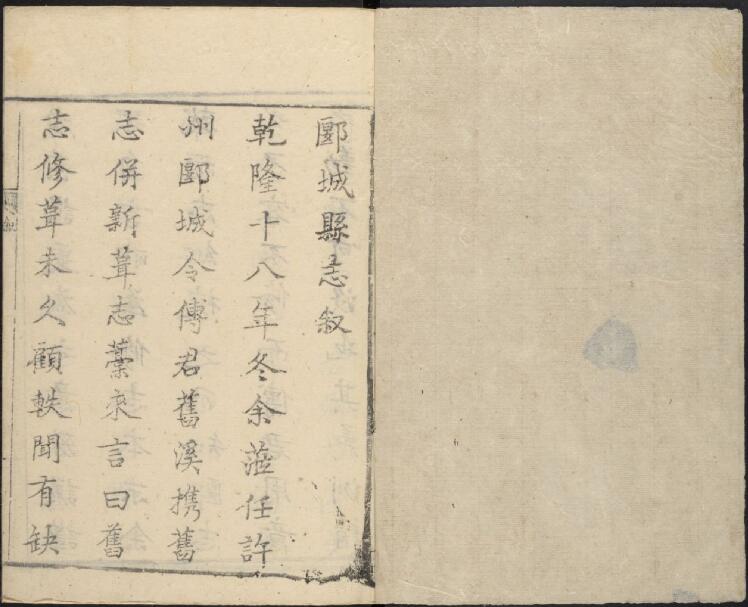 郾城縣志叙
乾隆十八年冬余蒞任許
州郾城令傅君舊溪携舊
志併新葺志藁來言曰舊
志修葺未久顧軼聞有缺